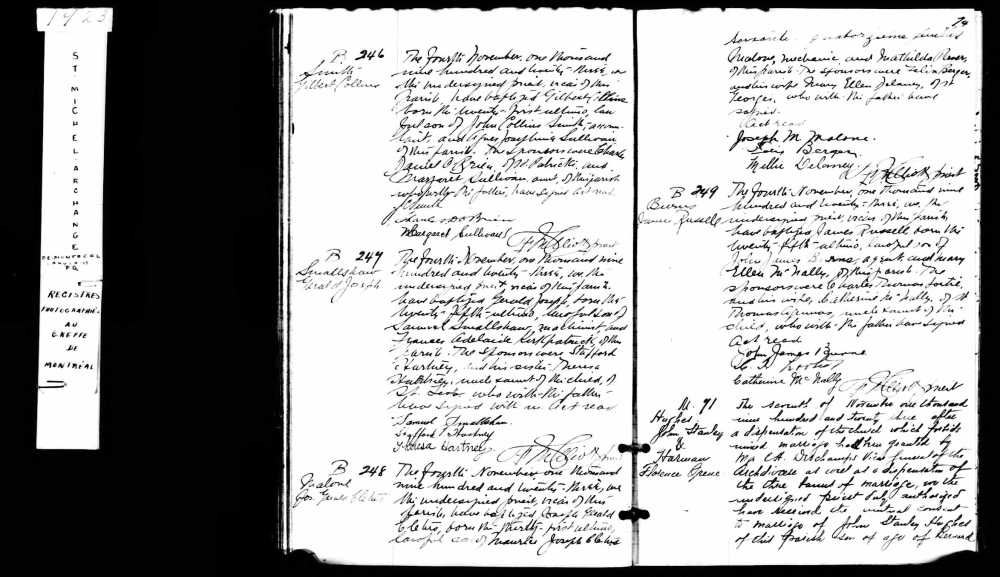 1923
ST MICHEL-ARCHANGE
DE MONTREAL
P.Q.
REGISTRES
PHOTOGRAPHIÉS
AU
GREFFE
DE
MONTRÉAL
B 246
Smith
Gilbert Collins
The Fourth November, one thousand
nine hundred and twenty-three, we
the undersigned priest, vicar of this
Parish, have baptized Gilbert Collins
born the twenty-first ultimo, law
ful son of John Collins Smith, accoun
tant, and Agnes Josephine Sullivan
of this parish. The sponsors were Charles
Daniel O'Brien of St Patrick, and
Margaret Sullivan, aunt, of this parish
who with the father, have signed Act read
Margaret Sullivan
B 247
Smallshaw
Gerald Joseph
The Fourth November, one thousand nine
hundred and twenty-three, we, the
undersigned priest, vicar of this parish
have baptized Gerald Joseph, born the
twenty-fifth ultimo, lawful son of
Samuel Smallshaw, machinist and
Frances Adelaide Kirkpatrick, of this
Parish. The sponsors were Stafford
Hartney, and his sister Theresa
Hartney, uncle & aunt of the child, of
St. Leo's who with the father
have signed with us Act read
Samuel Smallshaw
Stafford Hartney
Theresa Hartney
B 248
Malone
The Fourth November, one thousand
nine hundred and twenty-three, we
the undersigned, priest, vicar of this
parish, have baptized Joseph Gerald
born the thirty-first ultimo,
lawful son of Maurice Joseph
74
Malone, mechanic and Mathilda
of this parish. The sponsors were Felix Berger,
and his wife Mary Ellen Delaney, of St
Georges, who with the father have
signed.
Act read
Joseph M. Malone.
Felix Berger
Millie Delaney
priest
B 249
James Russell
The Fourth November, one thousand nine
hundred and twenty-three, we, the
undersigned priest, vicar of this parish
have baptized James Russell born the
twenty-fifth ultimo, lawful son of
John James Burns, agent, and Mary
Ellen McNally, of this parish. The
sponsors were Charles Thomas
and his wife, Catherine McNally, of St
Thomas Aquinas, uncle & aunt of the
child, who with the father have signed
Act read
John James
Catherine McNally
priest
M. 71
Hughes
John Stanley
&
Harman
Florence Irene
The seventh of November one thousand
nine hundred and twenty three after
a dispensation of the church which forbids
mixed marriage had been granted by
Mgr. Deschamps Vicar general of the
Archdiocese as well as a dispensation of
the three banns of marriage, we the
undersigned priest duly authorized
have received the mutual consent
to marriage of John Stanley Hughes
of this parish son of age of Bernard